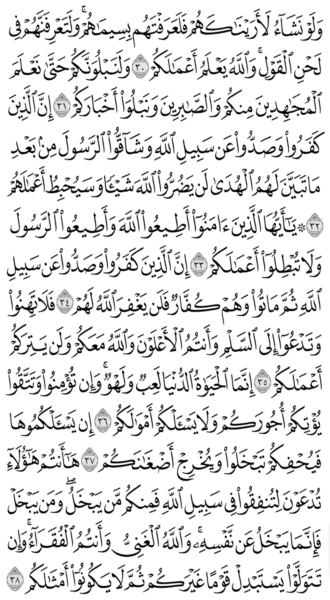 وَلَوْ نَشَآءُ لَأَرَيْنَٰكَهُمْ فَلَعَرَفْتَهُم بِسِيمَٰهُمْ ۚ وَلَتَعْرِفَنَّهُمْ فِى
لَحْنِ ٱلْقَوْلِ ۚ وَٱللَّهُ يَعْلَمُ أَعْمَٰلَكُمْ ٣٠ وَلَنَبْلُوَنَّكُمْ حَتَّىٰ نَعْلَمَ
ٱلْمُجَٰهِدِينَ مِنكُمْ وَٱلصَّٰبِرِينَ وَنَبْلُوَا۟ أَخْبَارَكُمْ ٣١ إِنَّ ٱلَّذِينَ
كَفَرُوا۟ وَصَدُّوا۟ عَن سَبِيلِ ٱللَّهِ وَشَآقُّوا۟ ٱلرَّسُولَ مِنۢ بَعْدِ
مَا تَبَيَّنَ لَهُمُ ٱلْهُدَىٰ لَن يَضُرُّوا۟ ٱللَّهَ شَيْـًٔا وَسَيُحْبِطُ أَعْمَٰلَهُمْ
٣٢ ۞ يَٰٓأَيُّهَا ٱلَّذِينَ ءَامَنُوٓا۟ أَطِيعُوا۟ ٱللَّهَ وَأَطِيعُوا۟ ٱلرَّسُولَ
وَلَا تُبْطِلُوٓا۟ أَعْمَٰلَكُمْ ٣٣ إِنَّ ٱلَّذِينَ كَفَرُوا۟ وَصَدُّوا۟ عَن سَبِيلِ
ٱللَّهِ ثُمَّ مَاتُوا۟ وَهُمْ كُفَّارٌ فَلَن يَغْفِرَ ٱللَّهُ لَهُمْ ٣٤ فَلَا تَهِنُوا۟
وَتَدْعُوٓا۟ إِلَى ٱلسَّلْمِ وَأَنتُمُ ٱلْأَعْلَوْنَ وَٱللَّهُ مَعَكُمْ وَلَن يَتِرَكُمْ
أَعْمَٰلَكُمْ ٣٥ إِنَّمَا ٱلْحَيَوٰةُ ٱلدُّنْيَا لَعِبٌ وَلَهْوٌ ۚ وَإِن تُؤْمِنُوا۟ وَتَتَّقُوا۟
يُؤْتِكُمْ أُجُورَكُمْ وَلَا يَسْـَٔلْكُمْ أَمْوَٰلَكُمْ ٣٦ إِن يَسْـَٔلْكُمُوهَا
فَيُحْفِكُمْ تَبْخَلُوا۟ وَيُخْرِجْ أَضْغَٰنَكُمْ ٣٧ هَٰٓأَنتُمْ هَٰٓؤُلَآءِ
تُدْعَوْنَ لِتُنفِقُوا۟ فِى سَبِيلِ ٱللَّهِ فَمِنكُم مَّن يَبْخَلُ ۖ وَمَن يَبْخَلْ
فَإِنَّمَا يَبْخَلُ عَن نَّفْسِهِۦ ۚ وَٱللَّهُ ٱلْغَنِىُّ وَأَنتُمُ ٱلْفُقَرَآءُ ۚ وَإِن
تَتَوَلَّوْا۟ يَسْتَبْدِلْ قَوْمًا غَيْرَكُمْ ثُمَّ لَا يَكُونُوٓا۟ أَمْثَٰلَكُم ٣٨